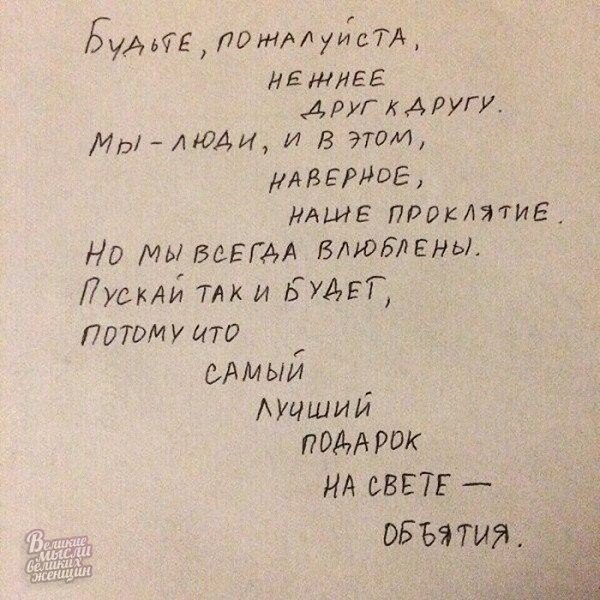 Будьте, пожалуйста,
нежнее
друг к другу.
Мы – люди, и в этом,
наверное,
наше проклятие.
Но мы всегда влюблены.
Пускай так и будет,
потому что
самый
лучший
подарок
на свете —
объятия.
Великие
мысли
великих
женщин